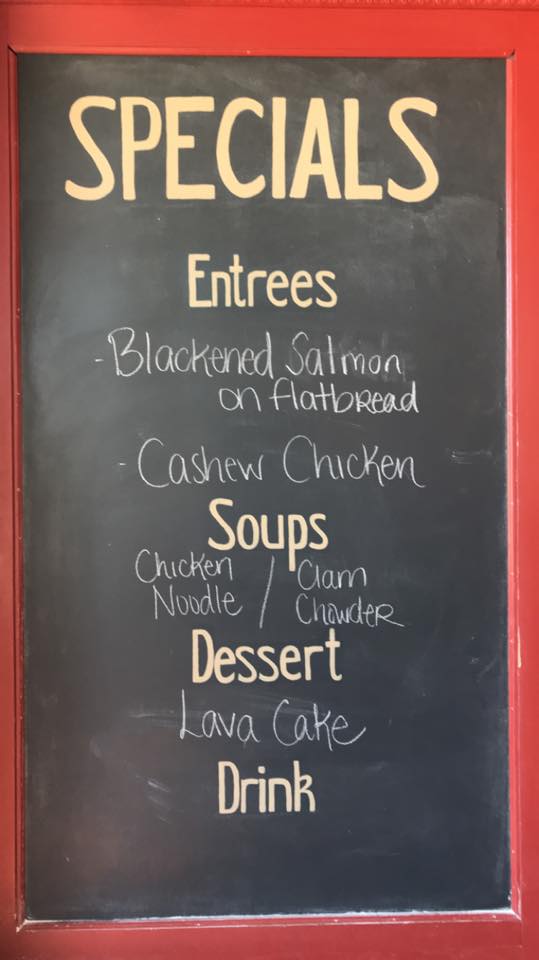 SPECIALS
Entrees
- Blackened Salmon
on flatbread
- Cashew Chicken
Soups
Chicken / Clam
Noodle Chowder
Dessert
Lava Cake
Drink